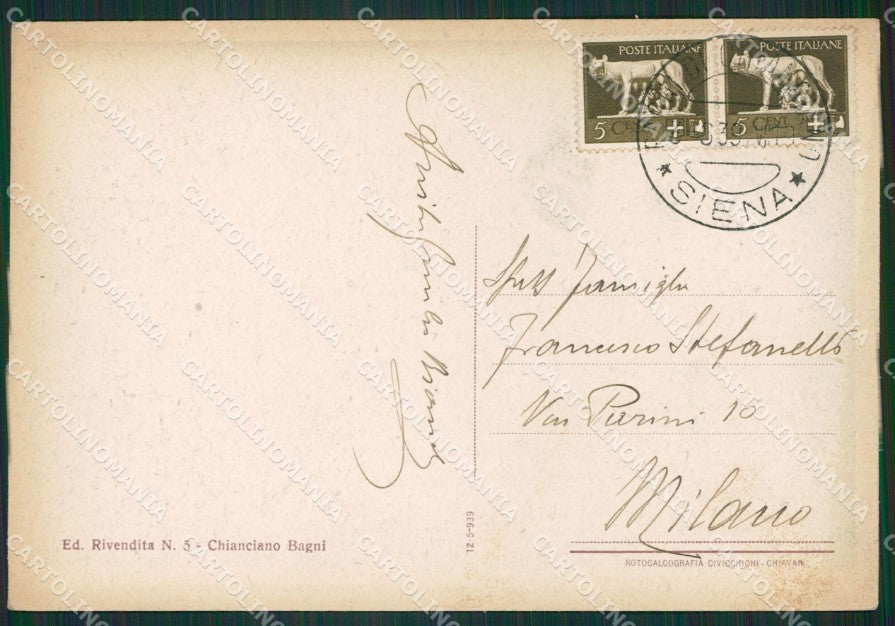 POSTE ITALIANE POSTE ITALIANE
5 CENT. 5 CENT.
SIENA
Spett Famiglia
Francesco Stefanello
Via Parini 10
Milano
Ed. Rivendita N. 5 - Chianciano Bagni
12-5-939
ROTOCALCOGRAFIA CIVICCHIONI - CHIAVARI
CARTOLINOMANIA